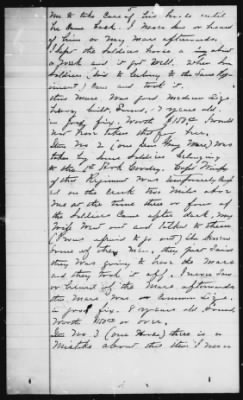 me to take care of his horse until
he came back. I never saw or heard
of him or my mare afterwards.
I kept the Soldiers horse a
a week and it got well. When
Soldiers, said to belong to the same
came and took it.
this Mare was good medium size
heavy built, Sound, 7 years old.
in good fix, Worth $150.00 I would
not have taken that for her.
Item No 2 (one Iron Gray Mare) was
taken by some Soldiers belonging
to the Cavalry.
of this Regiment was temporarily
ed on the creek two miles above
me at the time three or four of
the Soldiers came after dark, my
Wife went out and talked to them
(I was afraid to go out) She knew
some of these men, they just said
they was going to have the mare
and they took it off. I never saw
or heard of the Mare afterwards
the Mare was common size.
in good fix. 8 years old Sound,
Worth or over.
Item No. 3 (one Horse) there is a
mistake about this item I never